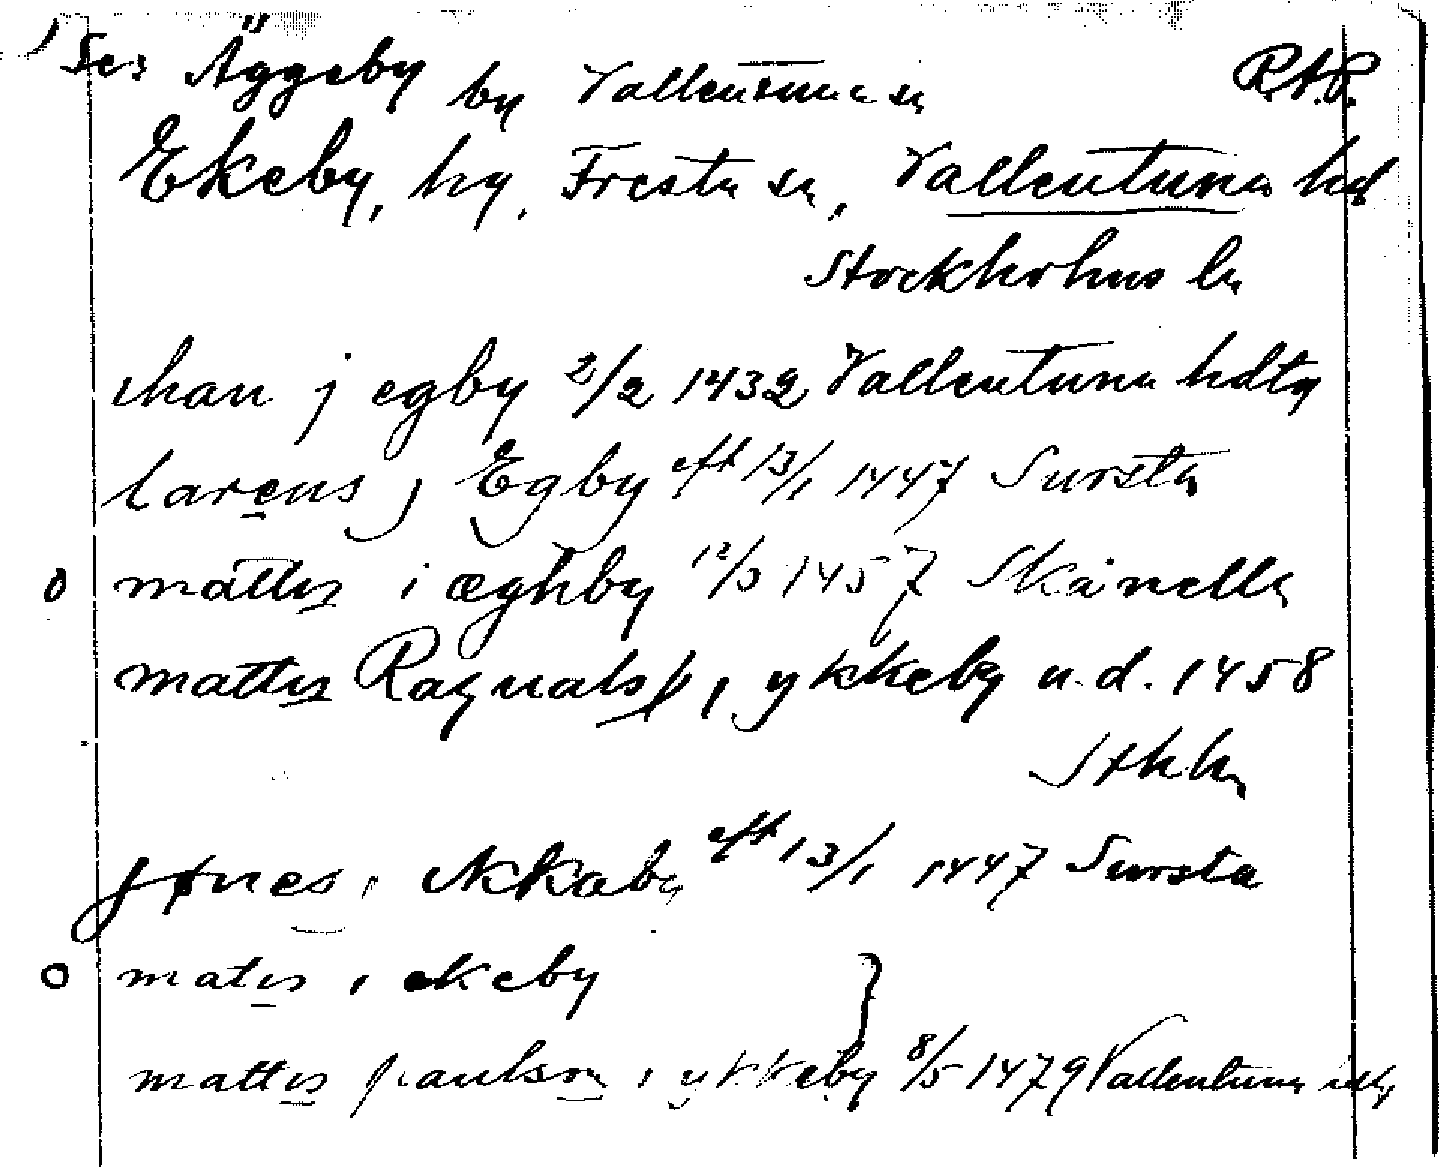 Se: Äggeby by Vallentuna sn R.A.P.
Ekeby, by, Fresta sn, Vallentuna hd
Stockholms ln
ihan j egby 2/2 1432 Vallentuna hdtg
larens j Egby eft 13/1 1447 Sursta
mattis i æghby 12/3 1457 Skånella
mattis Ragualss i ykkeby u.d. 1458
Sthlm
jønes i Akkaby eft 13/1 1447 Sursta
matis i ekeby
mattis paulson i ykkeby 8/5 1479 Vallentuna hdtg